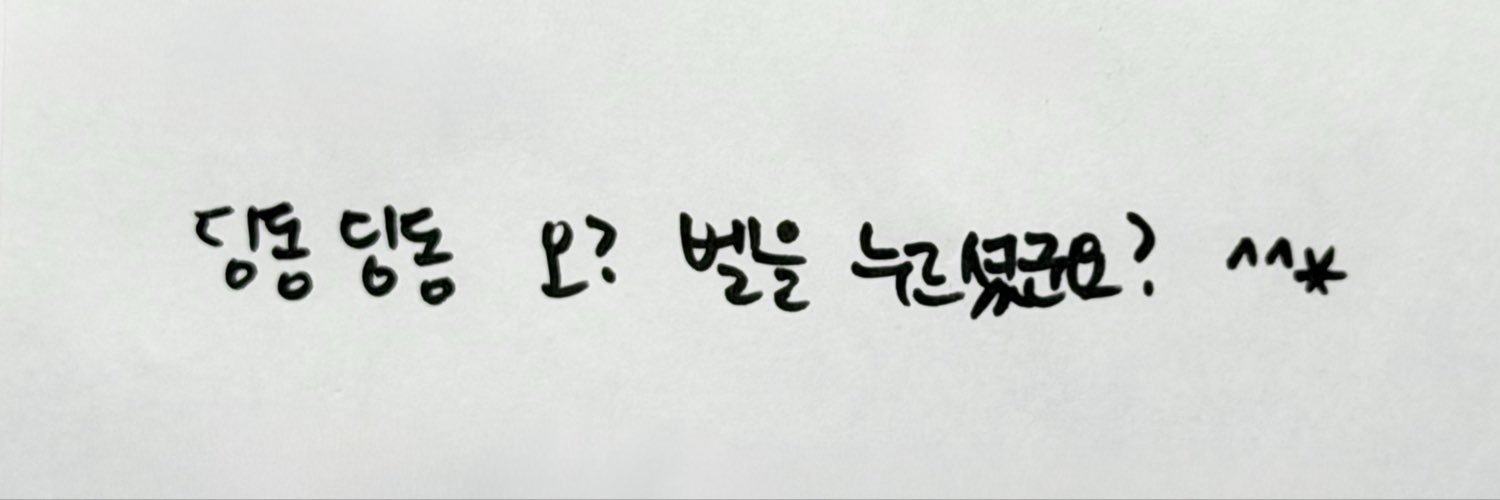 딩동 딩동 오? 벨을 누르셨군요? ^^*